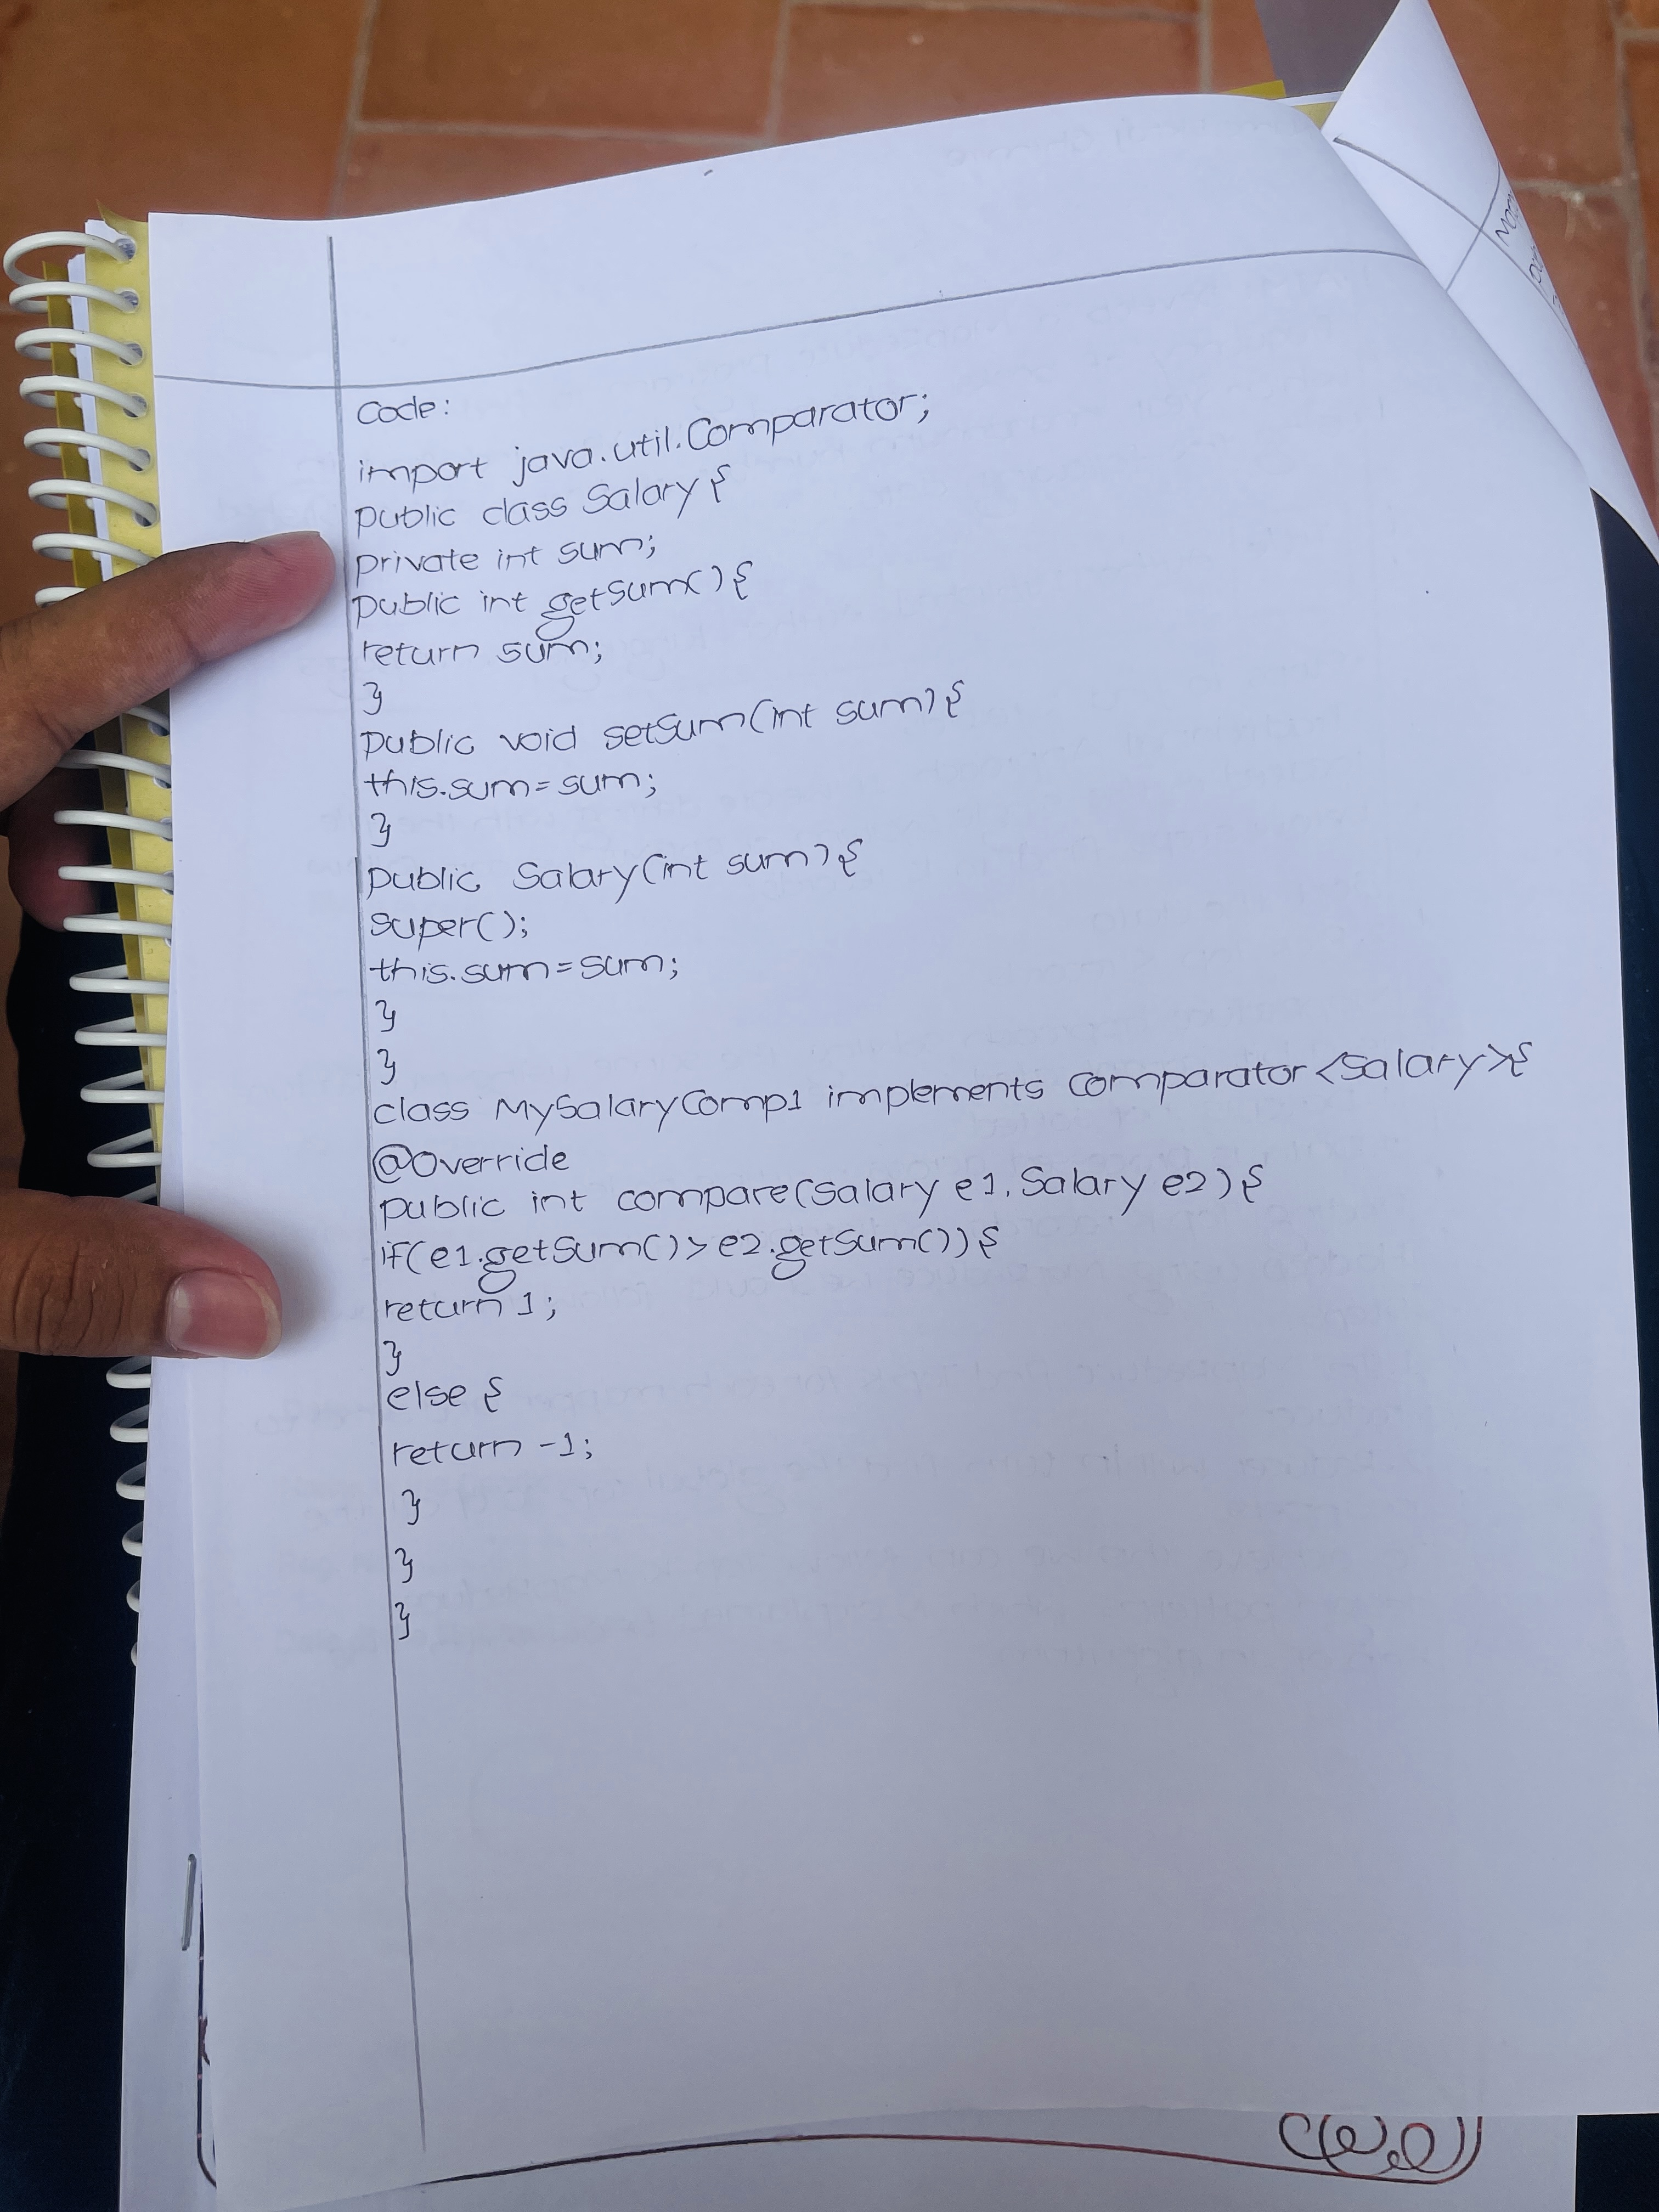 Code:
import java.util.Comparator;
public class Salary {
private int sum;
public int getSum() {
return sum;
}
public void setSum(int sum) {
this.sum = sum;
}
public Salary(int sum) {
super();
this.sum = sum;
}
}
class MySalaryComp1 implements Comparator<Salary>{
@Override
public int compare(Salary e1, Salary e2) {
if(e1.getSum() > e2.getSum()) {
return 1;
}
else {
return -1;
}
}
}